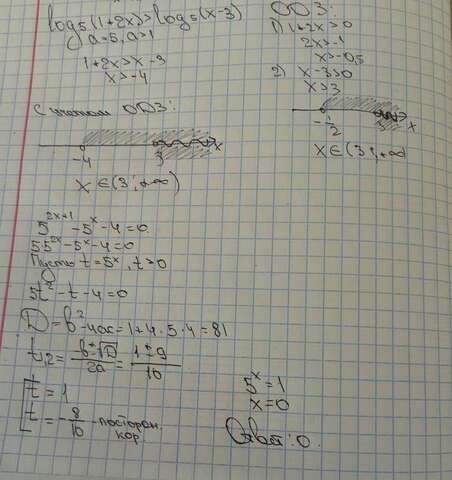 log₅(1+2x)>log₅(x-3)
a=5, a>1
1+2x>x-3
x>-4
ОДЗ:
1) 1+2x>0
2x>-1
x>-0,5
2) x-3>0
x>3
-1/2 3 x
x∈(3;+∞
С учётом ОДЗ:
-4 3 x
x∈(3;+∞)
5^(2x+1)-5^x-4=0
5·5^(2x)-5^x-4=0
Пусть t=5^x, t>0
5t²-t-4=0
D=b²-4ac=1+4·5·4=81
t₁,₂= (b±√D)/2a = (1±9)/10
t=1
t=-8/10 - посторон.
кор
5^x=1
x=0
Ответ: 0.